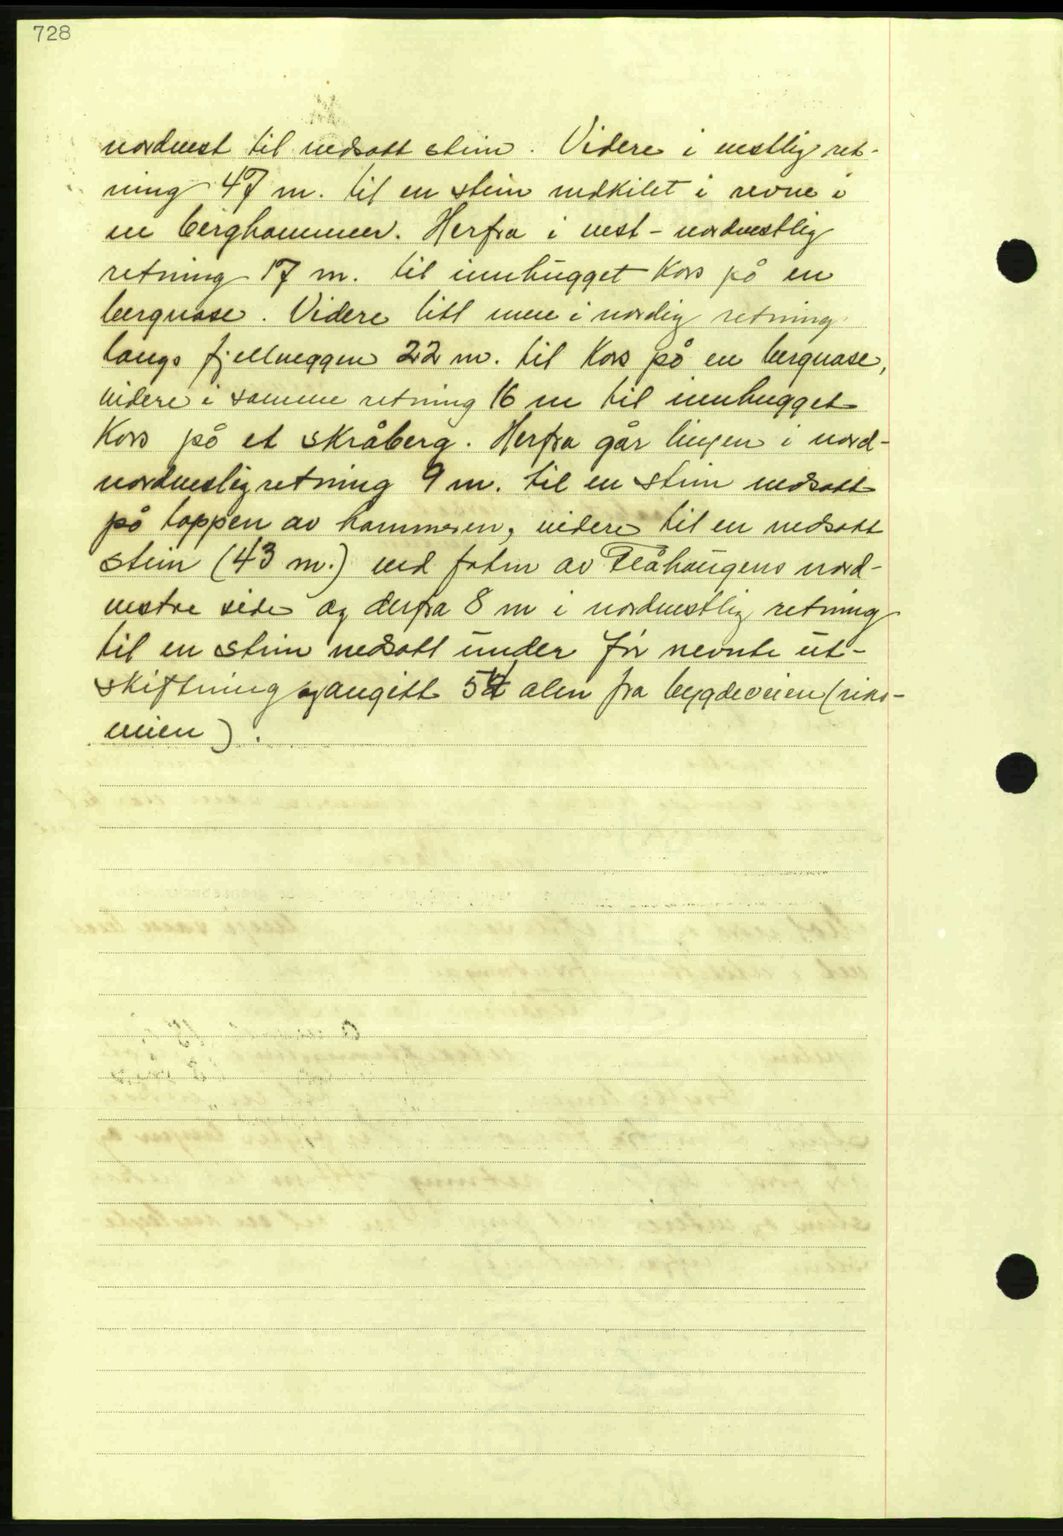 728
nordvest til nedsatt stein. Videre i vestlig ret-
ning 47 m. til en stein nedkilet i revne i
en berghammer. Herfra i vest-nordvestlig
retning 17 m. til innhugget Kors på en
bergnase. Videre litt mer i nordlig retning
langs fjellveggen 22 m. til Kors på en bergnase,
videre i samme retning 16 m til innhugget
Kors på et skråberg. Herfra går linjen i nord-
nordvestlig retning 9 m. til en stein nedsatt
på toppen av hammeren, videre til en nedsatt
stein (43 m.) ved foten av Flåhaugens nord-
vestre side og derfra 8 m i nordvestlig retning
til en stein nedsatt under før nevnte ut-
skiftning og angitt alen fra bygdeveien (riks-
veien).